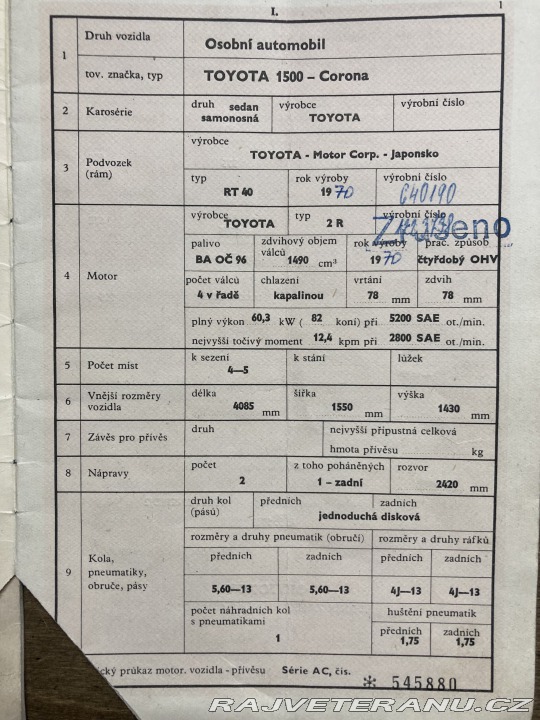 I. 1
1 Druh vozidla Osobní automobil
tov. značka, typ TOYOTA 1500 – Corona
2 Karosérie druh sedan samonosná výrobce TOYOTA výrobní číslo
3 Podvozek (rám) výrobce TOYOTA - Motor Corp. - Japonsko
typ RT 40 rok výroby 1970 výrobní číslo 640190
4 Motor výrobce TOYOTA typ 2 R výrobní číslo Zrušeno
palivo BA OČ 96 zdvihový objem válců 1490 cm³ rok výroby 1970 prac. způsob čtyřdobý OHV
počet válců 4 v řadě chlazení kapalinou vrtání 78 mm zdvih 78 mm
plný výkon 60,3 kW ( 82 koní) při 5200 SAE ot./min.
nejvyšší točivý moment 12,4 kpm při 2800 SAE ot./min.
5 Počet míst k sezení 4—5 k stání lůžek
6 Vnější rozměry vozidla délka 4085 mm šířka 1550 mm výška 1430 mm
7 Závěs pro přívěs druh nejvyšší přípustná celková
hmota přívěsu kg
8 Nápravy počet 2 z toho poháněných 1 – zadní rozvor 2420 mm
9 Kola, pneumatiky, obruče, pásy druh kol (pásů) předních zadních
jednoduchá disková
rozměry a druhy pneumatik (obručí) rozměry a druhy ráfků
předních zadních předních zadních
5,60—13 5,60—13 4J—13 4J—13
počet náhradních kol s pneumatikami 1 huštění pneumatik
předních 1,75 zadních 1,75
ický průkaz motor. vozidla - přívěsu Série AC, čís. * 545880
RAJVETERANU.CZ